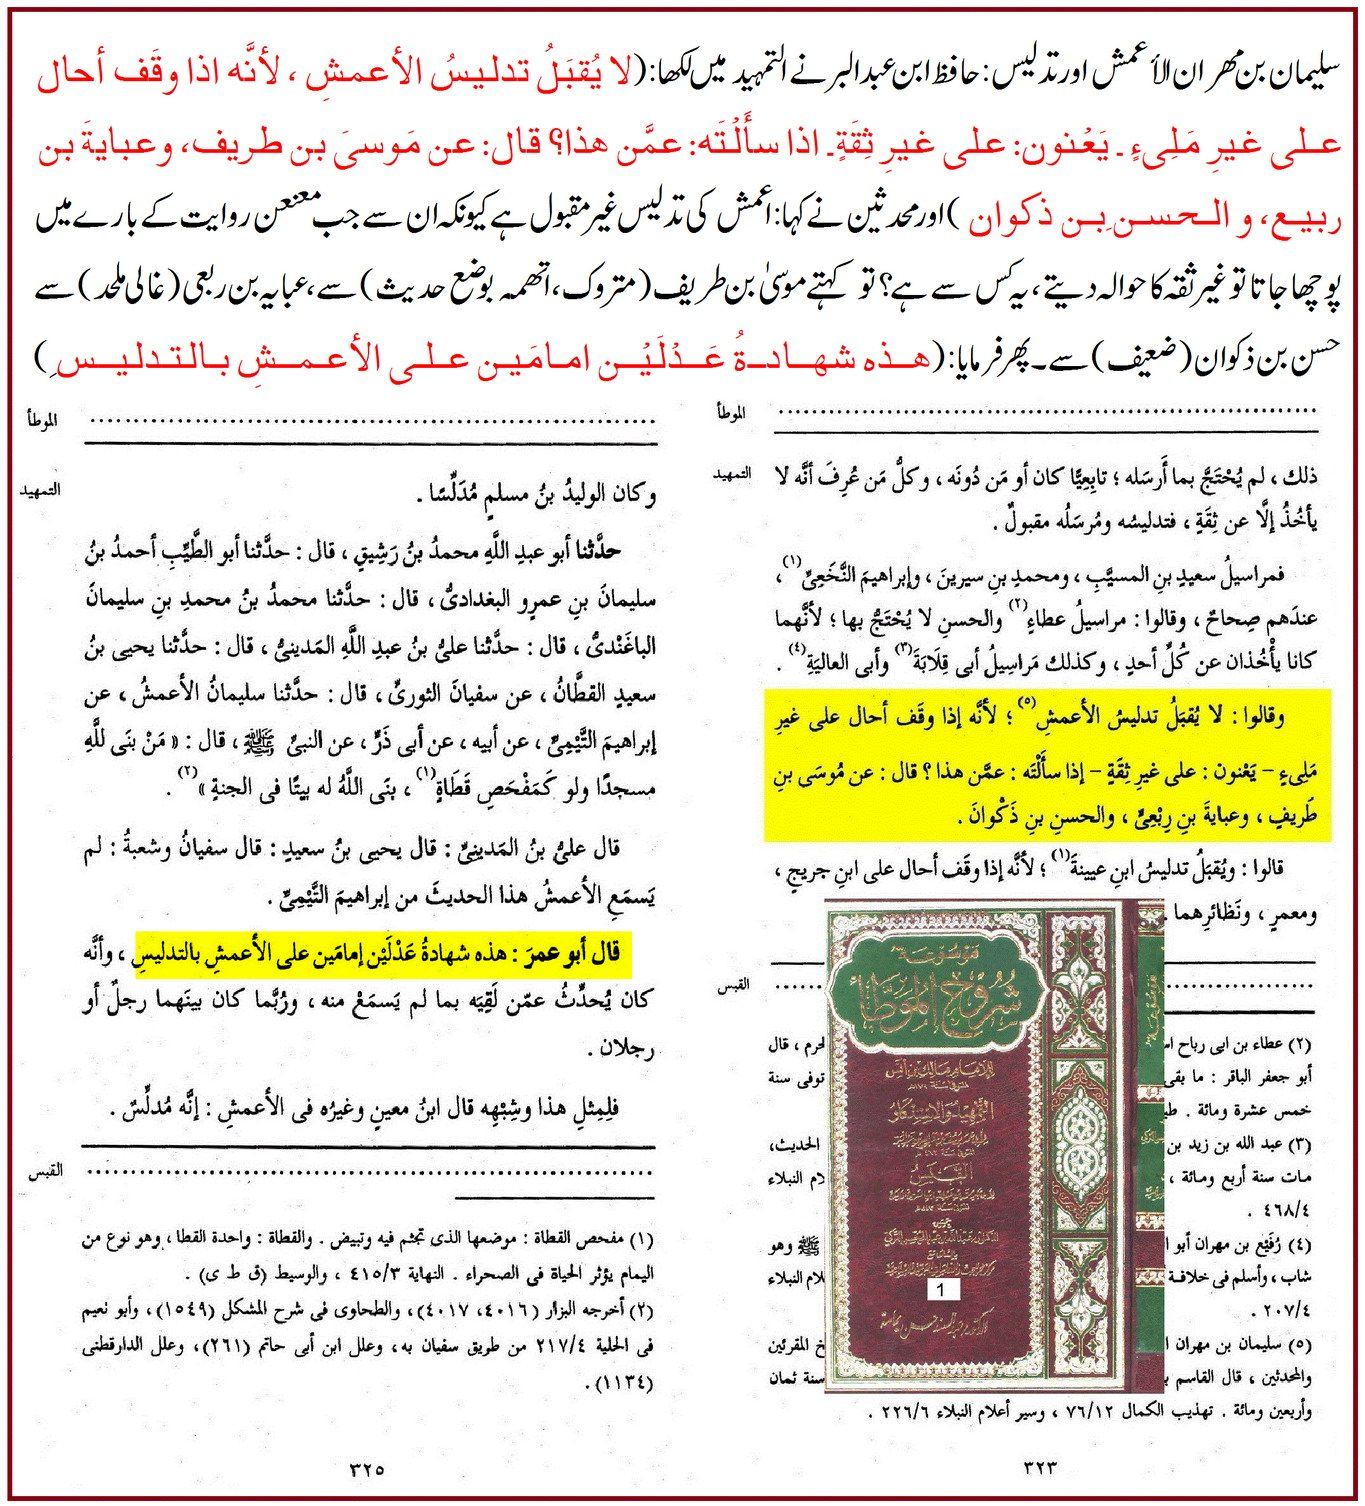 سلیمان بن مہران الأعمش اور تدلیس: حافظ ابن عبد البر نے التمہید میں لکھا: (لا يُقبَلُ تدليسُ الأعمشِ ، لأنَّه اذا وقَف أحال
على غيرِ مَلِىءٍ ـ يَعْنون: على غيرِ ثِقَةٍ ـ اذا سأَلْتَه: عمَّن هذا؟ قال: عن مَوسىَ بن طريف، وعبايةَ بن
ربيع، و الحسنِ بن ذكوان) اور محدثین نے کہا: اعمش کی تدلیس غیر مقبول ہے کیونکہ ان سے جب معنعن روایت کے بارے میں
پوچھا جاتا تو غیر ثقہ کا حوالہ دیتے، یہ کس سے ہے؟ تو کہتے موسیٰ بن طریف (متروک، اتھمہ بوضع حدیث) سے، عبایہ بن ربعی (غالی ملحد) سے
حسن بن ذکوان (ضعیف) سے۔ پھر فرمایا: (هذه شهادةُ عَدْلَيْن امامَين على الأعمشِ بالتدليسِ)
الموطأ
ذلك ، لم يُحْتَجَّ بما أَرسَله ؛ تابِعِيًّا كان أو مَن دُونَه ، وكلُّ مَن عُرِفَ أنَّه لا
التمهيد
يأخُذُ إلَّا عن ثِقَةٍ ، فتدليسُه ومُرسَلُه مقبولٌ .
فمراسيلُ سعيدِ بنِ المسيَّبِ ، ومحمدِ بنِ سيرينَ ، وإبراهيمَ النَّخَعِىِّ(١) ،
عندَهم صِحاحٌ ، وقالوا : مراسيلُ عطاءٍ(٢) والحسنِ لا يُحْتَجُّ بها ؛ لأنَّهما
كانا يأْخُذان عن كُلِّ أحدٍ ، وكذلك مَراسيلُ أبى قِلابَةَ(٣) وأبى العاليَةِ(٤) .
وقالوا : لا يُقبَلُ تدليسُ الأعمشِ(٥) ؛ لأنَّه إذا وقَف أحال على غيرِ
مَلِىءٍ – يَعْنون : على غيرِ ثِقَةٍ – إذا سأَلْتَه : عمَّن هذا ؟ قال : عن مُوسَى بنِ
طَريفٍ ، وعبايةَ بنِ رِبْعِىٍّ ، والحسنِ بنِ ذَكْوانَ .
قالوا : ويُقبَلُ تدليسُ ابنِ عيينةَ(١) ؛ لأنَّه إذا وقَف أحال على ابنِ جريجٍ ،
ومعمرٍ ، ونَظائرِهما .
القبس
(٢) عطاء بن ابى رباح اس
لحرم ، قال
أبو جعفر الباقر : ما بقى
توفى سنة
خمس عشرة ومائة . طب
(٣) عبد الله بن زيد بن
الحديث،
مات سنة أربع ومائة ،
لام النبلاء
٤٦٨/٤ .
(٤) رُفَيْع بن مهران أبو ا
ﷺ وهو
شاب ، وأسلم فى خلافة
لام النبلاء
٢٠٧/٤ .
(٥) سليمان بن مهران ا
خ المقرئين
والمحدثين ، قال القاسم ب
سنة ثمان
وأربعين ومائة . تهذيب الكمال ٧٦/١٢ ، وسير أعلام النبلاء ٢٢٦/٦ .
٣٢٣
موسوعة
شروح الموطأ
للإمام مالك بن أنس
التمهيد والاستذكار
القبس
1
الموطأ
وكان الوليدُ بنُ مسلمٍ مُدَلِّسًا .
التمهيد
حدَّثنا أبو عبدِ اللَّهِ محمدُ بنُ رَشِيقٍ ، قال : حدَّثنا أبو الطَّيِّبِ أحمدُ بنُ
سليمانَ بنِ عمرٍو البغدادىُّ ، قال : حدَّثنا محمدُ بنُ محمدِ بنِ سليمانَ
الباغَنْدىُّ ، قال : حدَّثنا علىُّ بنُ عبدِ اللَّهِ المَدينىُّ ، قال : حدَّثنا يحيى بنُ
سعيدٍ القطَّانُ ، عن سفيانَ الثورىِّ ، قال : حدَّثنا سليمانُ الأعمشُ ، عن
إبراهيمَ التَّيْمِىِّ ، عن أبيه ، عن أبى ذَرٍّ ، عن النبىِّ ﷺ ، قال : « مَنْ بنَى للَّهِ
مسجدًا ولو كَمَفْحَصِ قَطَاةٍ(١) ، بنَى اللَّهُ له بيتًا فى الجنةِ »(٢) .
قال علىُّ بنُ المَدينىِّ : قال يحيى بنُ سعيدٍ : قال سفيانُ وشعبةُ : لم
يَسمَعِ الأعمشُ هذا الحديثَ من إبراهيمَ التَّيْمِىِّ .
قال أبو عمرَ : هذه شهادةُ عَدْلَيْن إمامَين على الأعمشِ بالتدليسِ ، وأنَّه
كان يُحدِّثُ عمَّن لَقِيَه بما لم يَسمَعْ منه ، ورُبَّما كان بينَهما رجلٌ أو
رجلان .
فلِمِثلِ هذا وشِبْهِه قال ابنُ معينٍ وغيرُه فى الأعمشِ : إنَّه مُدلِّسٌ .
القبس
(١) مفحص القطاة : موضعها الذى تجثم فيه وتبيض . والقطاة : واحدة القطا ، وهو نوع من
اليمام يؤثر الحياة فى الصحراء . النهاية ٤١٥/٣ ، والوسيط (ق ط ى) .
(٢) أخرجه البزار (٤٠١٦، ٤٠١٧)، والطحاوى فى شرح المشكل (١٥٤٩)، وأبو نعيم
فى الحلية ٢١٧/٤ من طريق سفيان به، وعلل ابن أبى حاتم (٢٦١)، وعلل الدارقطنى
(١١٣٤) .
٣٢٥